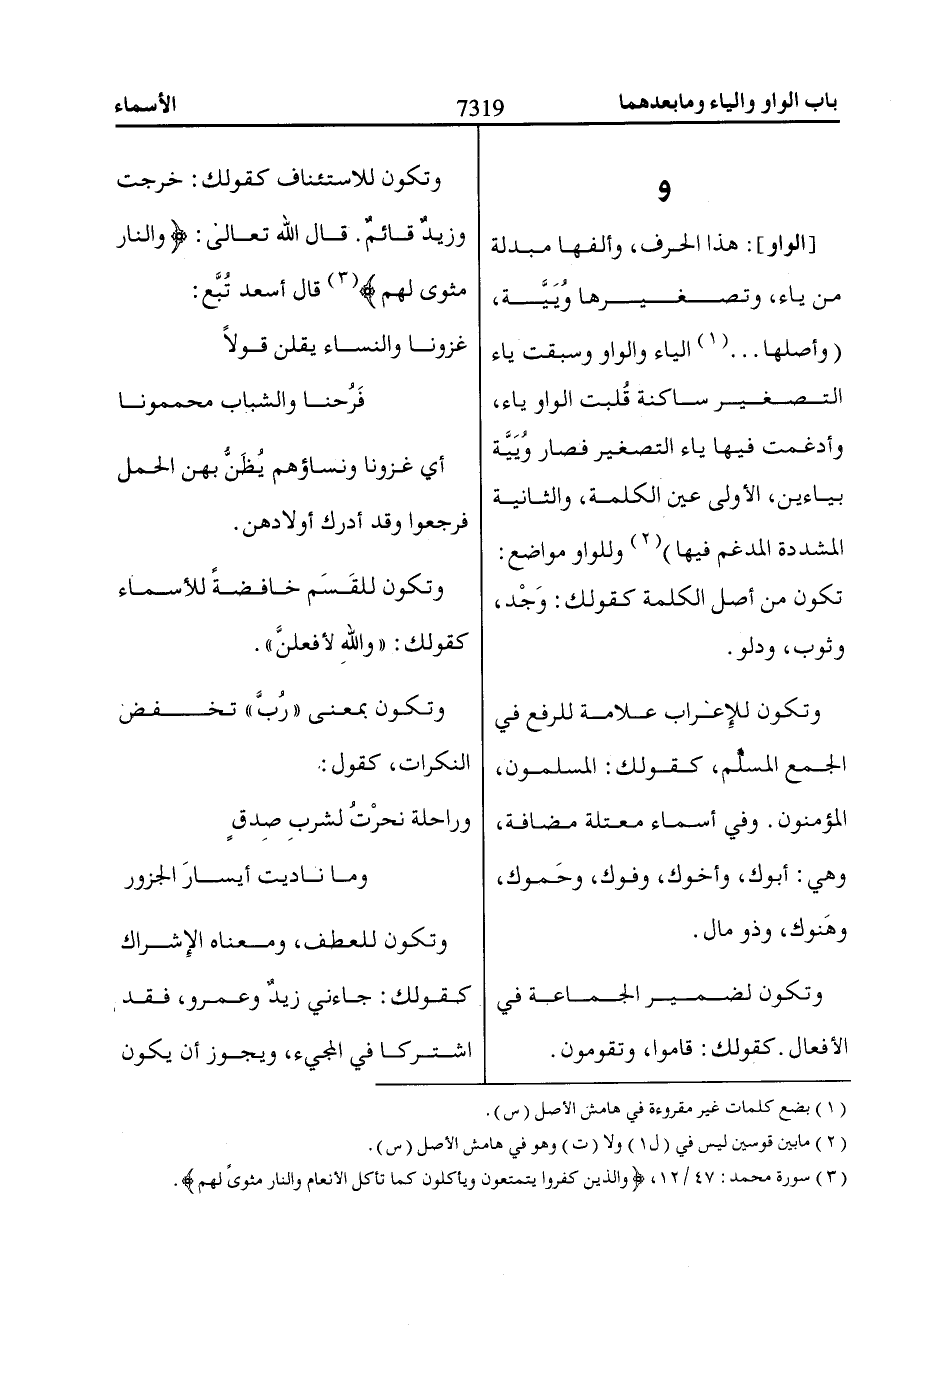 باب الواو والياء ومابعدهما 7319 الأسماء
و
[الواو]: هذا الحرف، وألفها مبدلة
من ياء، وتصغيرها وُيَيَّة،
(وأصلها...(١) الياء والواو وسبقت ياء
التصغير ساكنة قُلبت الواو ياء،
وأدغمت فيها ياء التصغير فصار وُيَيَّة
بياءين، الأولى عين الكلمة، والثانية
المشددة المدغم فيها)(٢) وللواو مواضع:
تكون من أصل الكلمة كقولك: وَجْد،
وثوب، ودلو.
وتكون للإعراب علامة للرفع في
الجمع المسلَّم، كقولك: المسلمون،
المؤمنون. وفي أسماء معتلة مضافة،
وهي: أبوك، وأخوك، وفوك، وحَموك،
وهَنوك، وذو مال.
وتكون لضمير الجماعة في
الأفعال. كقولك: قاموا، وتقومون.
وتكون للاستئناف كقولك: خرجت
وزيدٌ قائمٌ. قال الله تعالى: ﴿والنار
مثوى لهم﴾(٣) قال أسعد تُبَّع:
غزونا والنساء يقلن قولاً
فَرُحنا والشباب محممونا
أي غزونا ونساؤهم يُظَنُّ بهن الحمل
فرجعوا وقد أدرك أولادهن.
وتكون للقَسَم خافضةً للأسماء
كقولك: «واللهِ لأفعلنَّ».
وتكون بمعنى «رُبَّ» تخفض
النكرات، كقول:
وراحلة نحرْتُ لشربِ صدقٍ
وما ناديت أيسارَ الجزور
وتكون للعطف، ومعناه الإشراك
كقولك: جاءني زيدٌ وعمرو، فقد
اشتركا في المجيء، ويجوز أن يكون
(١) بضع كلمات غير مقروءة في هامش الأصل (س).
(٢) مابين قوسين ليس في (ل١) ولا (ت) وهو في هامش الأصل (س).
(٣) سورة محمد: ٤٧ /١٢، ﴿والذين كفروا يتمتعون ويأكلون كما تأكل الأنعام والنار مثوىً لهم﴾.